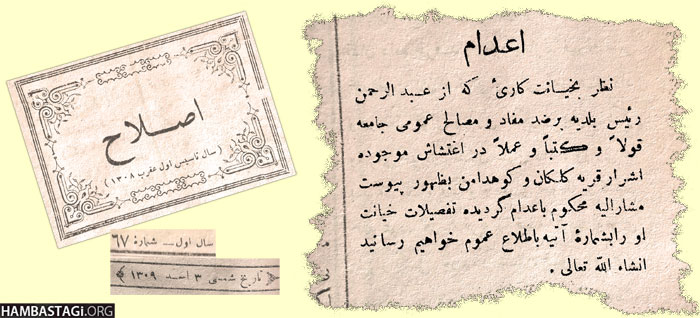 اصلاح
(سال تاسیس اول عقرب ۱۳۰۸)
سال اول ــ شمارهٔ ۶۷
تاریخ شمسی ۳ اسد ۱۳۰۹
اعدام
نظر بخیانت کاریٔ که از عبد الرحمن
رئیس بلدیه برضد مفاد و مصالح عمومی جامعه
قولاً و کتباً و عملاً در اغتشاش موجوده
اشرار قریه کلکان و کوهدامن بظهور پیوست
مشارالیه محکوم باعدام گردیده تفصیلات خیانت
او رابشمارهٔ آتیه باطلاع عموم خواهیم رسانید
انشاء الله تعالی .
HAMBASTAGI.ORG